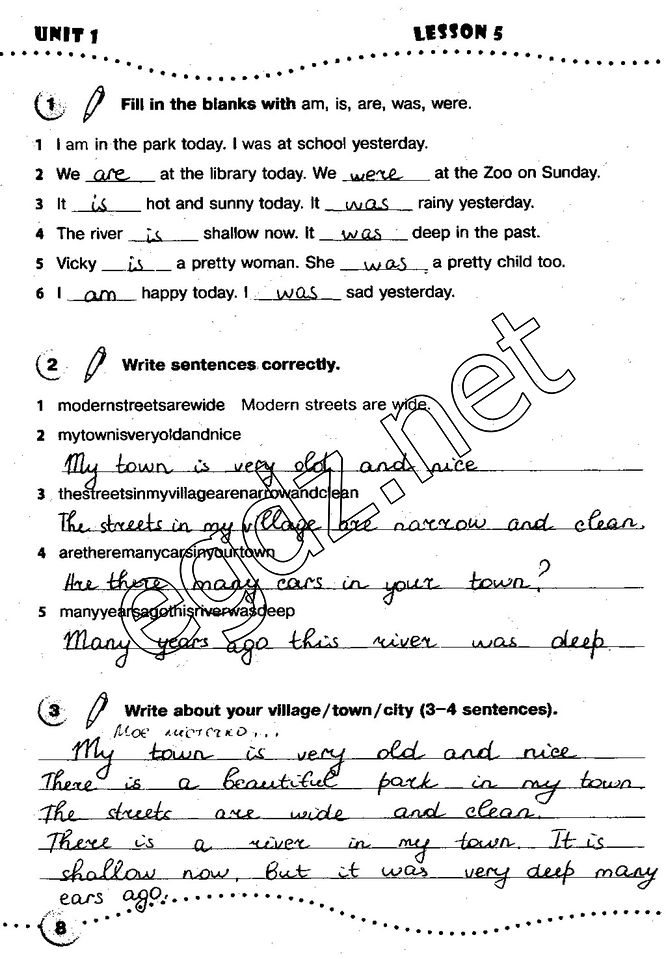 UNIT 1 LESSON 5
1 Fill in the blanks with am, is, are, was, were.
1 I am in the park today. I was at school yesterday.
2 We are at the library today. We were at the Zoo on Sunday.
3 It is hot and sunny today. It was rainy yesterday.
4 The river is shallow now. It was deep in the past.
5 Vicky is a pretty woman. She was a pretty child too.
6 I am happy today. I was sad yesterday.
2 Write sentences correctly.
1 modernstreetsarewide Modern streets are wide.
2 mytownisveryoldandnice
My town is very old and nice
3 thestreetsinmyvillagearenarrowandclean
The streets in my village are narrow and clean.
4 aretheremanycarsinyourtown
Are there many cars in your town?
5 manyyearsagothisriverwasdeep
Many years ago this river was deep
egdz.net
3 Write about your village/town/city (3–4 sentences).
Моє містечко...
My town is very old and nice
There is a beautiful park in my town
The streets are wide and clean.
There is a river in my town. It is
shallow now. But it was very deep many
ears ago.
8